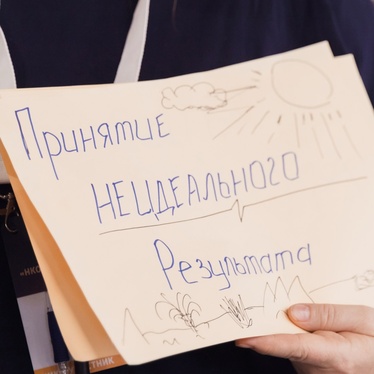 Принятие
НЕИДЕАЛЬНОГО
Результата
«НКО